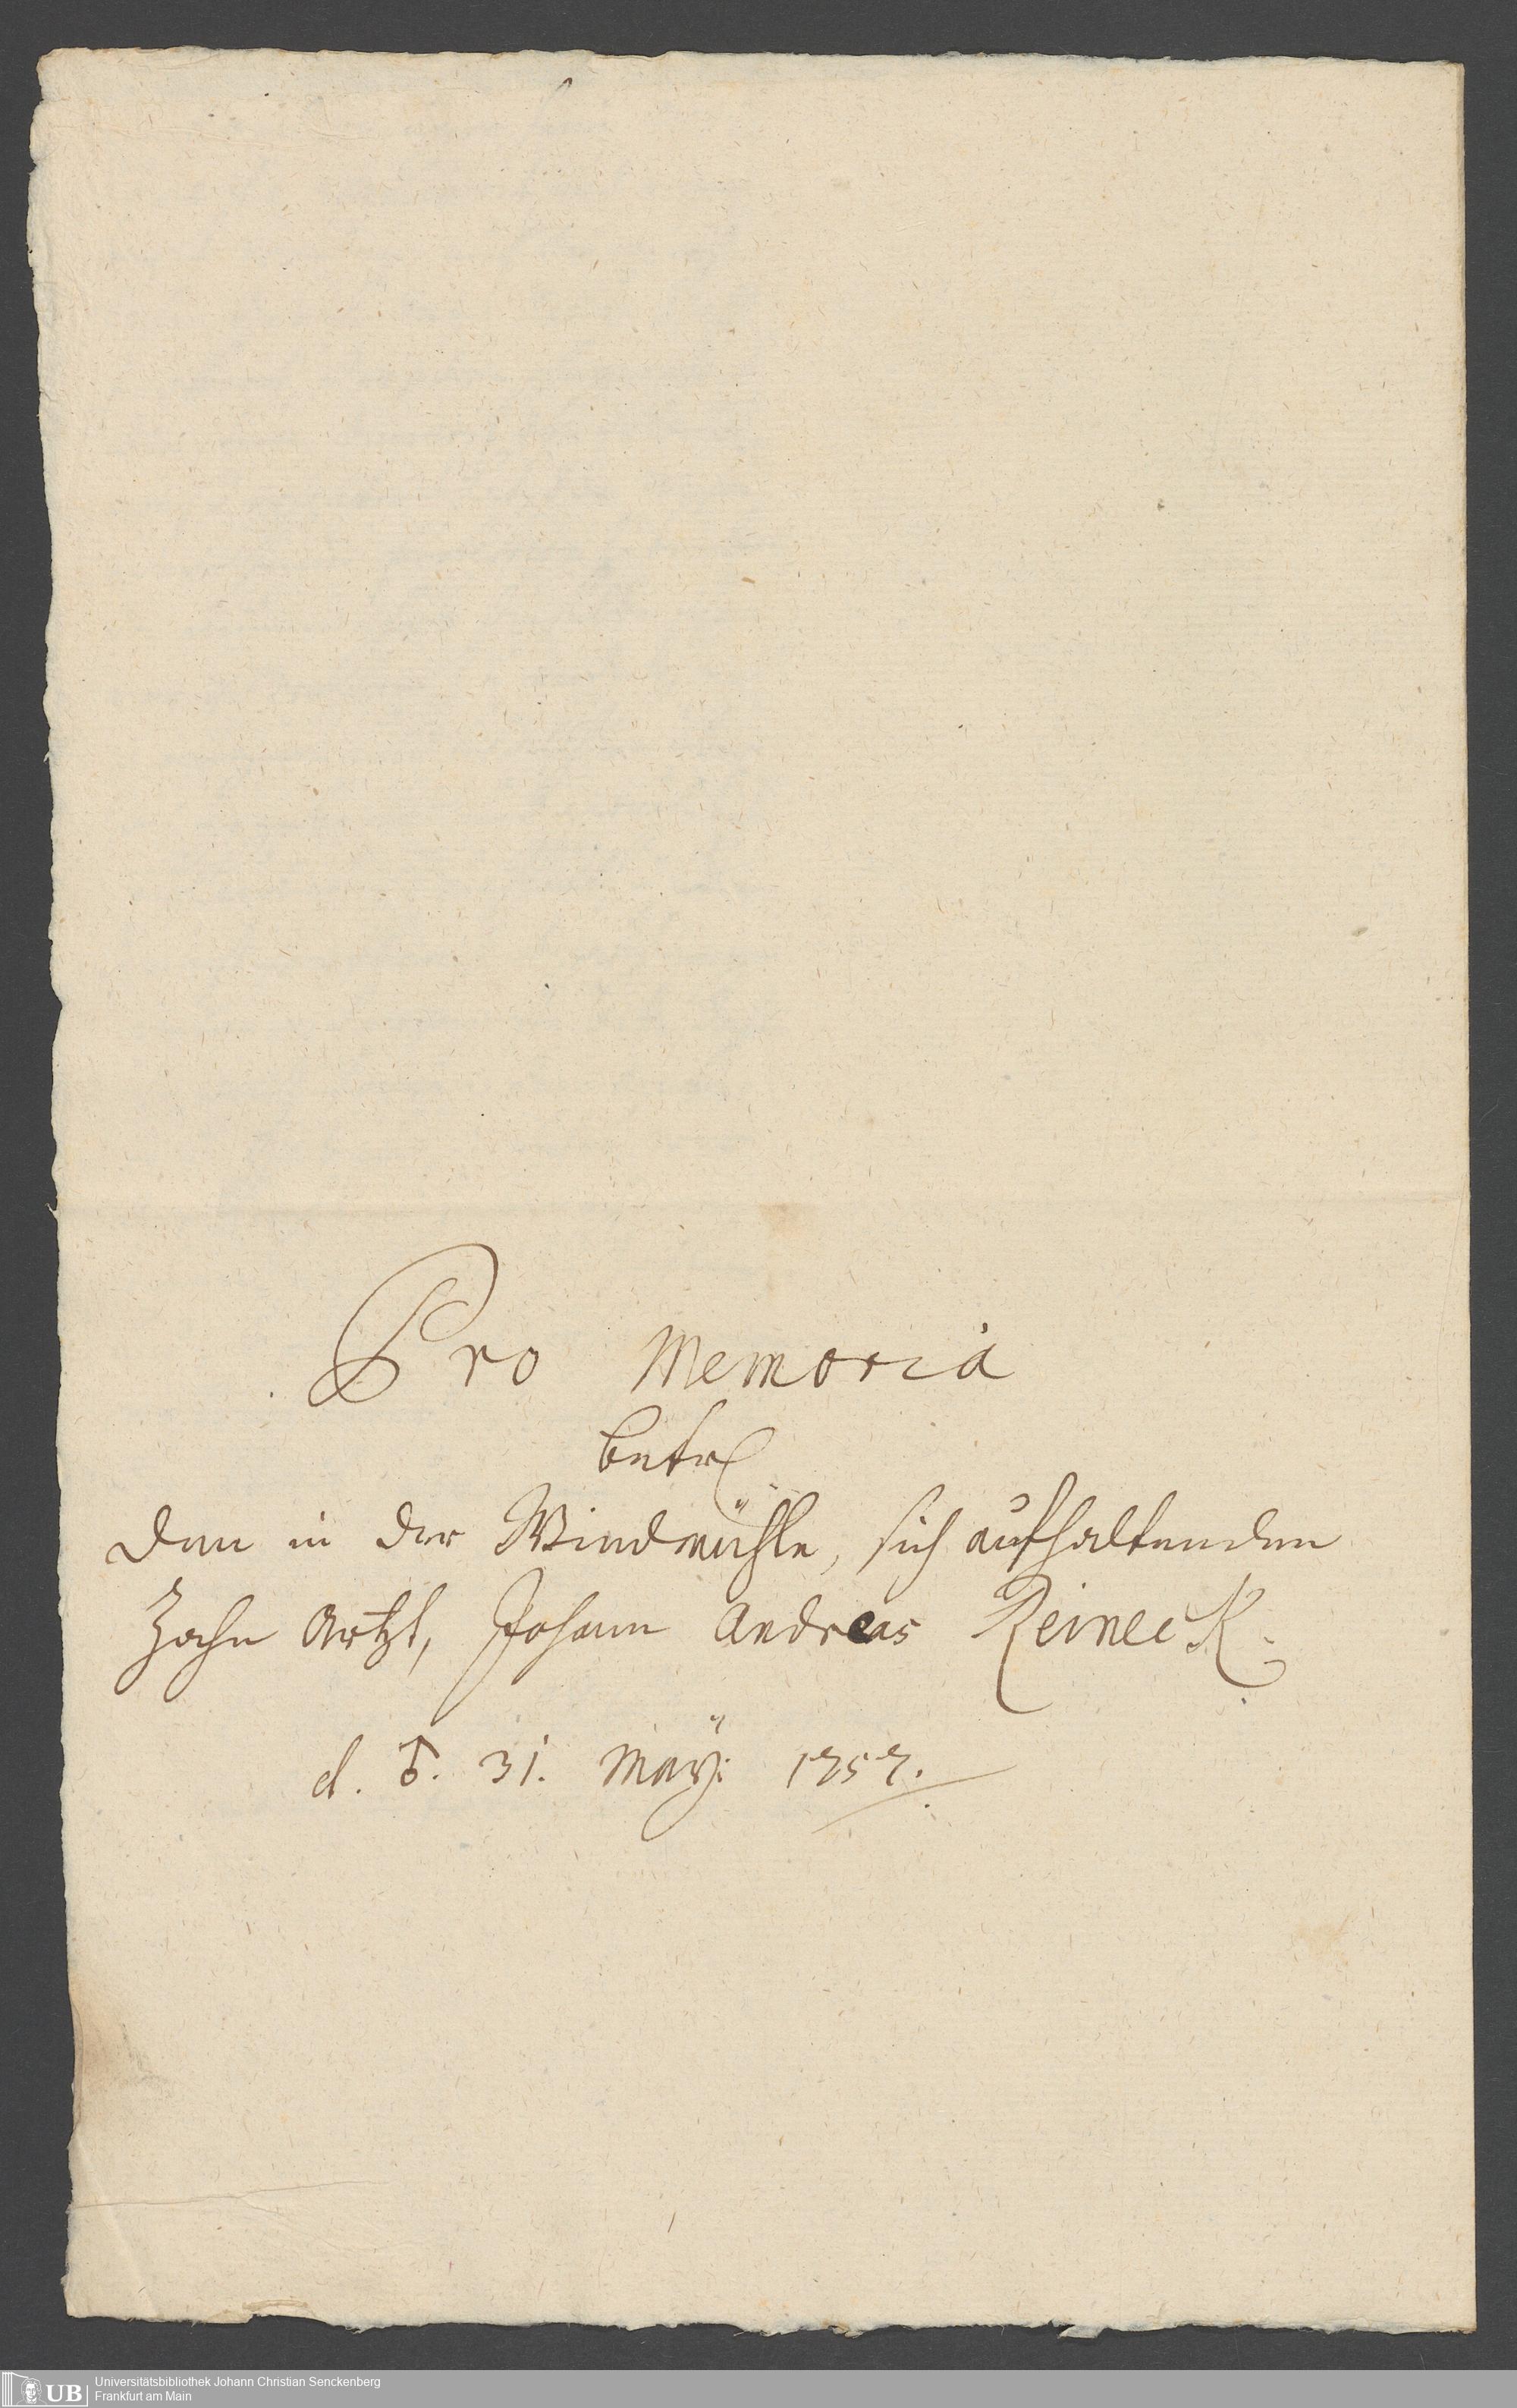 Pro Memoria
betr
den in der Windmühle, sich aufhaltenden
Zahn Artzt, Johann Andreas Reineck.
d. ♂. 31. May: 1757.
UB
Universitätsbibliothek Johann Christian Senckenberg
Frankfurt am Main